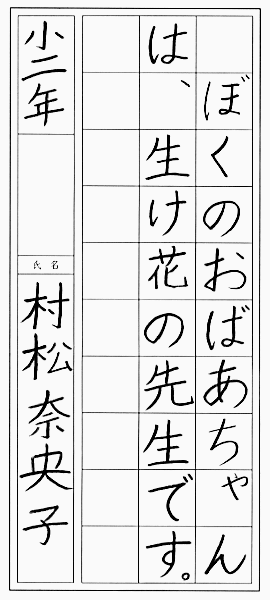 ぼくのおばあちゃん
は、生け花の先生です。
小二年
氏名
村松奈央子